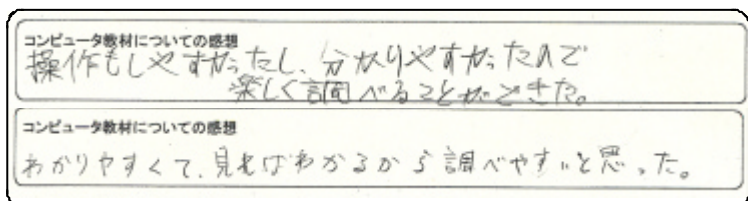 コンピュータ教材についての感想
操作もしやすかったし、分かりやすかったので
楽しく調べることができた。
コンピュータ教材についての感想
わかりやすくて、見ればわかるから調べやすいと思った。